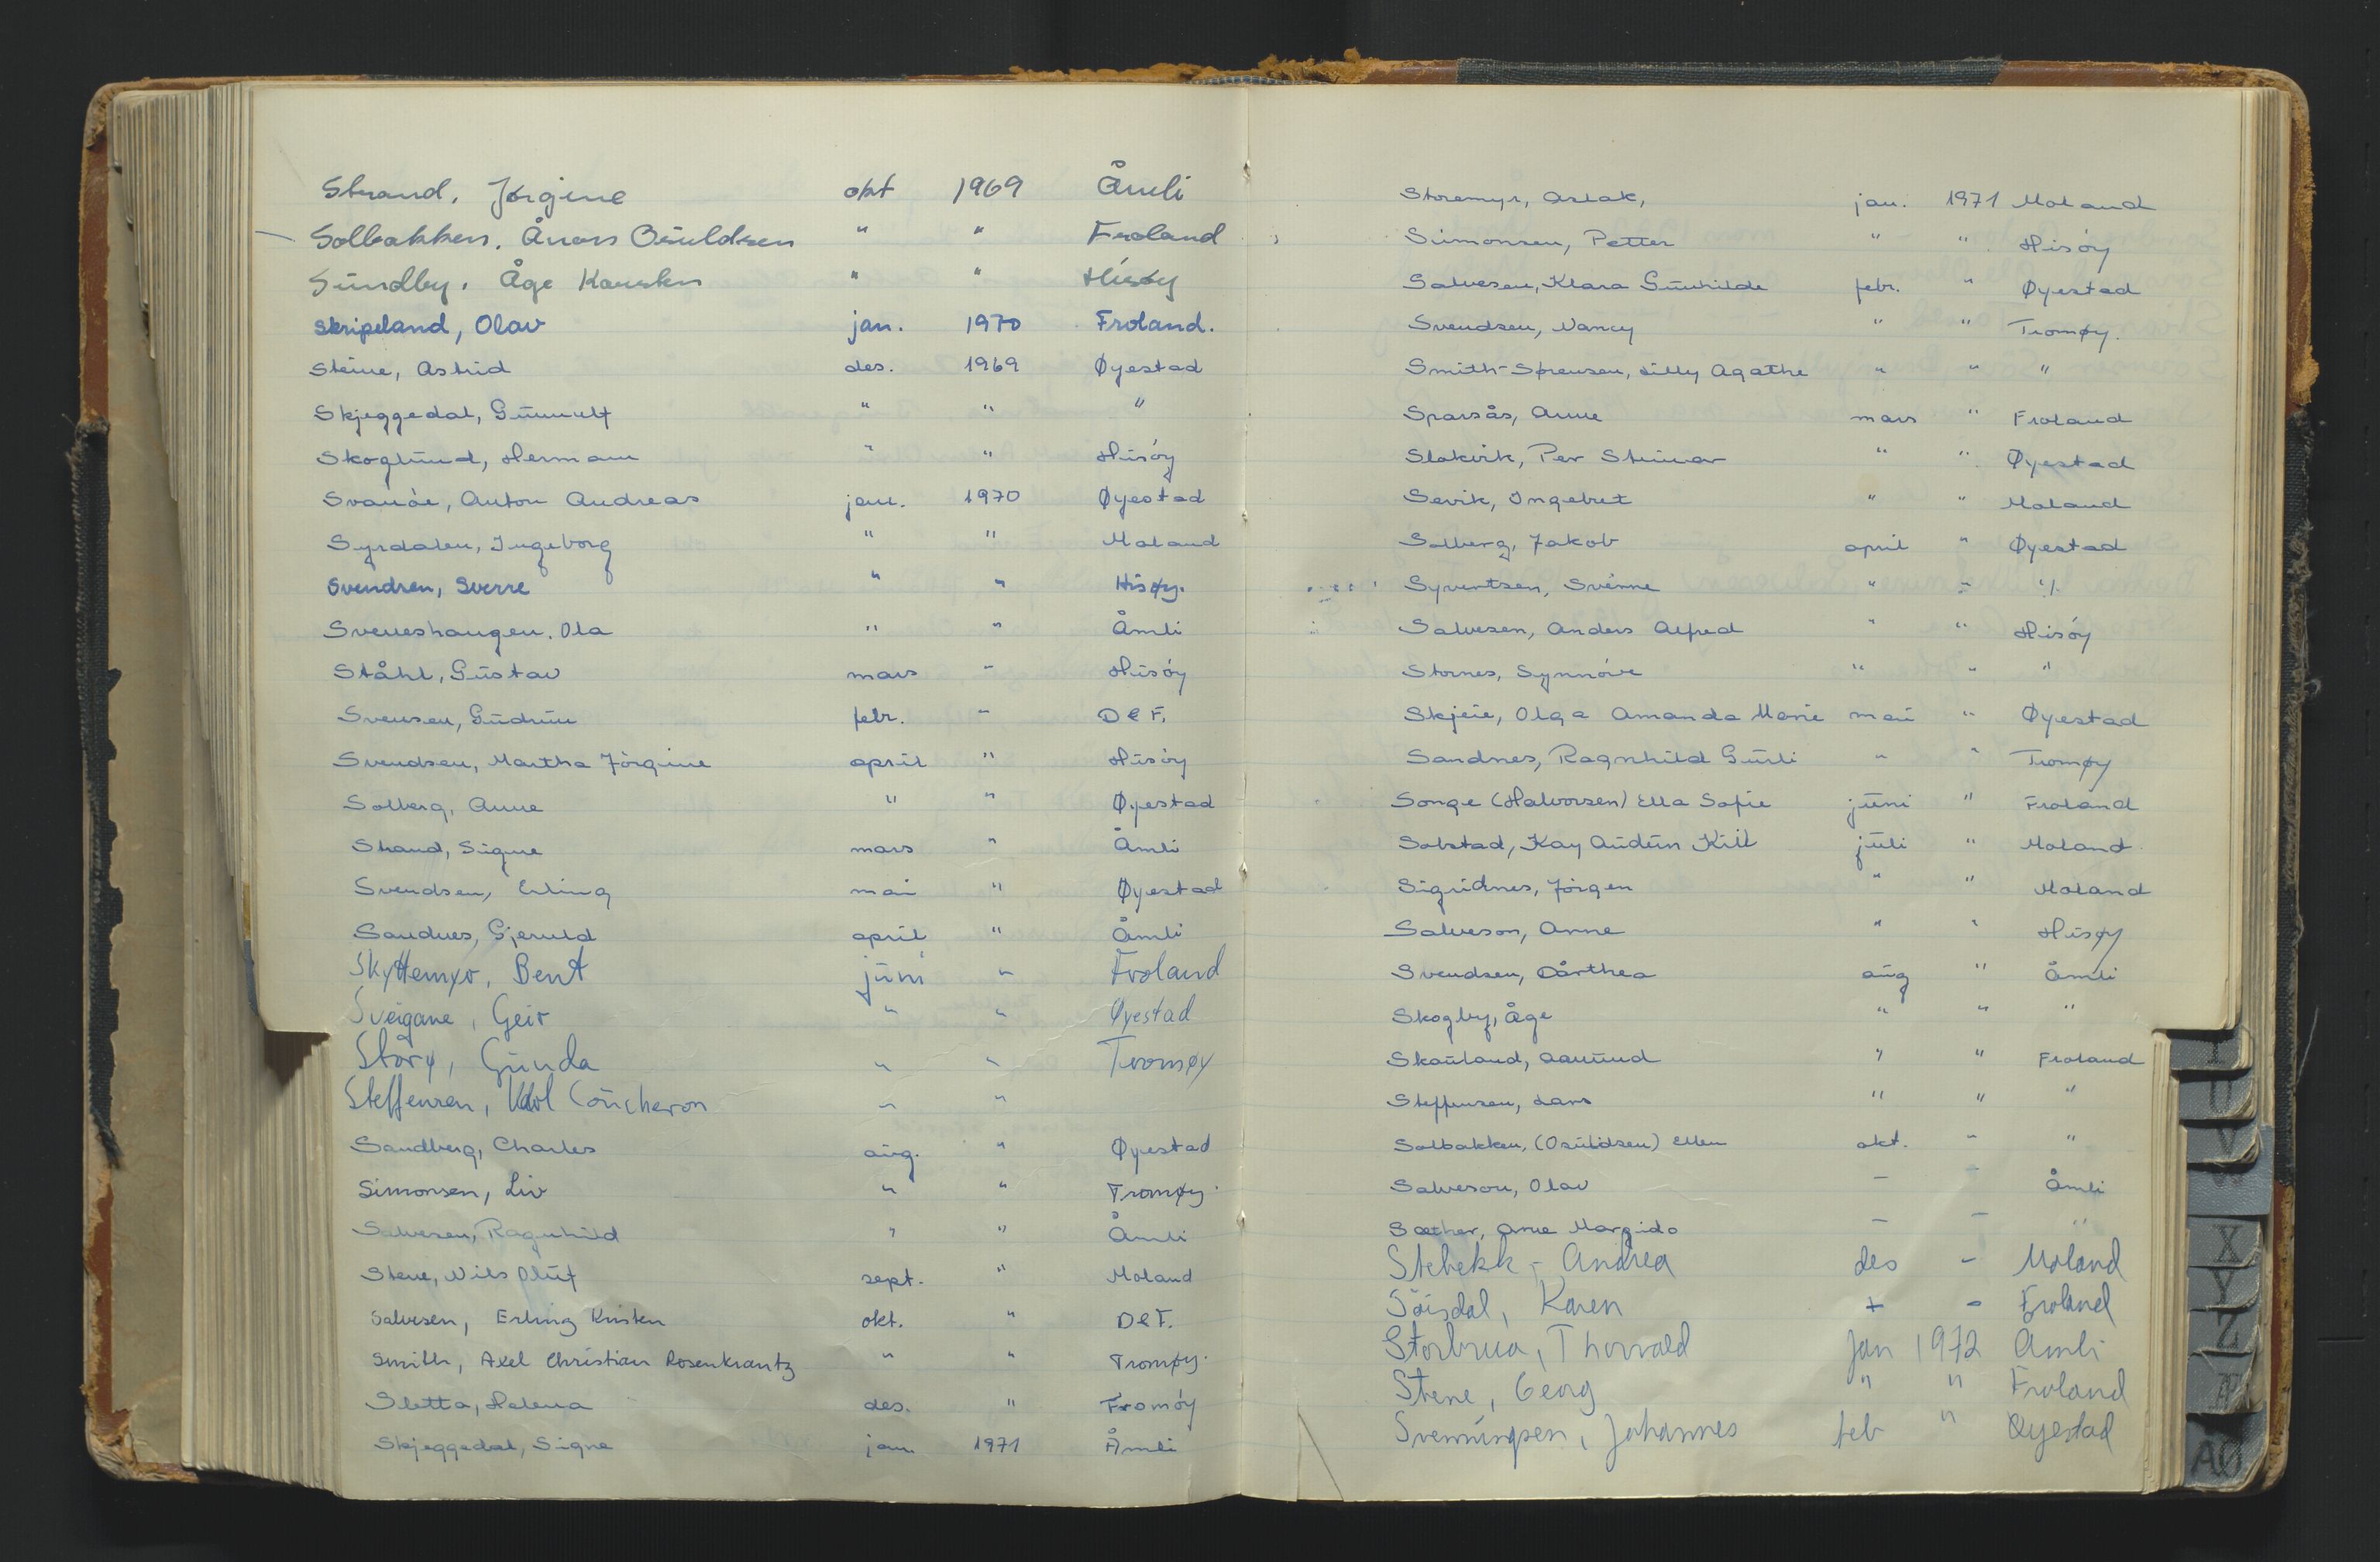 Strand, Jørgine okt 1969 Åmli
Solbakken, Ånon Osuldsen " " Froland
Sundby, Åge Karsten " " Hisøy
Skripeland, Olav jan. 1970 Froland.
Steine, Astrid des. 1969 Øyestad
Skjeggedal, Gunnulf " " "
Skoglund, Hermann " " Hisøy
Svanøe, Anton Andreas jan. 1970 Øyestad
Syrdalen, Ingeborg " " Moland
Svendsen, Sverre " " Hisøy.
Sveneshaugen. Ola " " Åmli
Ståhl, Gustav mars " Hisøy
Svensen, Gudrun febr. " DeF.
Svendsen, Martha Jørgine april " Hisøy
Solberg, Anne " " Øyestad
Strand, Signe mars " Åmli
Svendsen, Erling mai " Øyestad
Sandnes, Gjeruld april " Åmli
Skyttemyr, Bent juni " Froland
Sveigane, Geir " " Øyestad
Story, Gunda " " Tromøy
Steffensen, Karl Coucheron " "
Sandberg, Charles aug. " Øyestad
Simonsen, Liv " " Tromøy.
Salvesen, Ragnhild " " Åmli
Stene, Nils Oluf sept. " Moland
Salvesen, Erling Kristen okt. " DeF.
Smith, Axel Christian Rosenkrantz " " Tromøy.
Sletta, Helena des. " Tromøy
Skjeggedal, Signe jan. 1971 Åmli
Storemyr, Aslak, jan. 1971 Moland
Simonsen, Petter " " Hisøy
Salvesen, Klara Gunhilde febr. " Øyestad
Svendsen, Nancy " " Tromøy.
Smith-Sørensen, Lilly Agathe " " "
Sparsås, Anne mars " Froland
Slakvik, Per Steinar " " Øyestad
Sevik, Ingebret " " Moland
Solberg, Jakob april " Øyestad
Syvertsen, Sverre " " "
Salvesen, Anders Alfred " " Hisøy
Stornes, Synnøve " " "
Skjeie, Olga Amanda Marie mai " Øyestad
Sandnes, Ragnhild Gurli " " Tromøy
Songe (Halvorsen) Ella Sofie juni " Froland
Solstad, Kay Audun Kill juli " Moland
Sigridnes, Jørgen " " Moland
Salveson, Anne " " Hisøy
Svendsen, Dårthea aug " Åmli
Skogby, Åge " " "
Skauland, Aamund " " Froland
Steffensen, Lars " " "
Solbakken, (Osuldsen) Ellen okt. " "
Salveson, Olav - - Åmli
Sæther, Arne Margido - - "
Stebekk - Andrea des - Moland
Søisdal, Karen + - Froland
Storbrua, Thorvald Jan 1972 Åmli
Stene, Georg " " Froland
Svenningsen, Johannes feb " Øyestad
U
V
X
Y
Z
AÅ